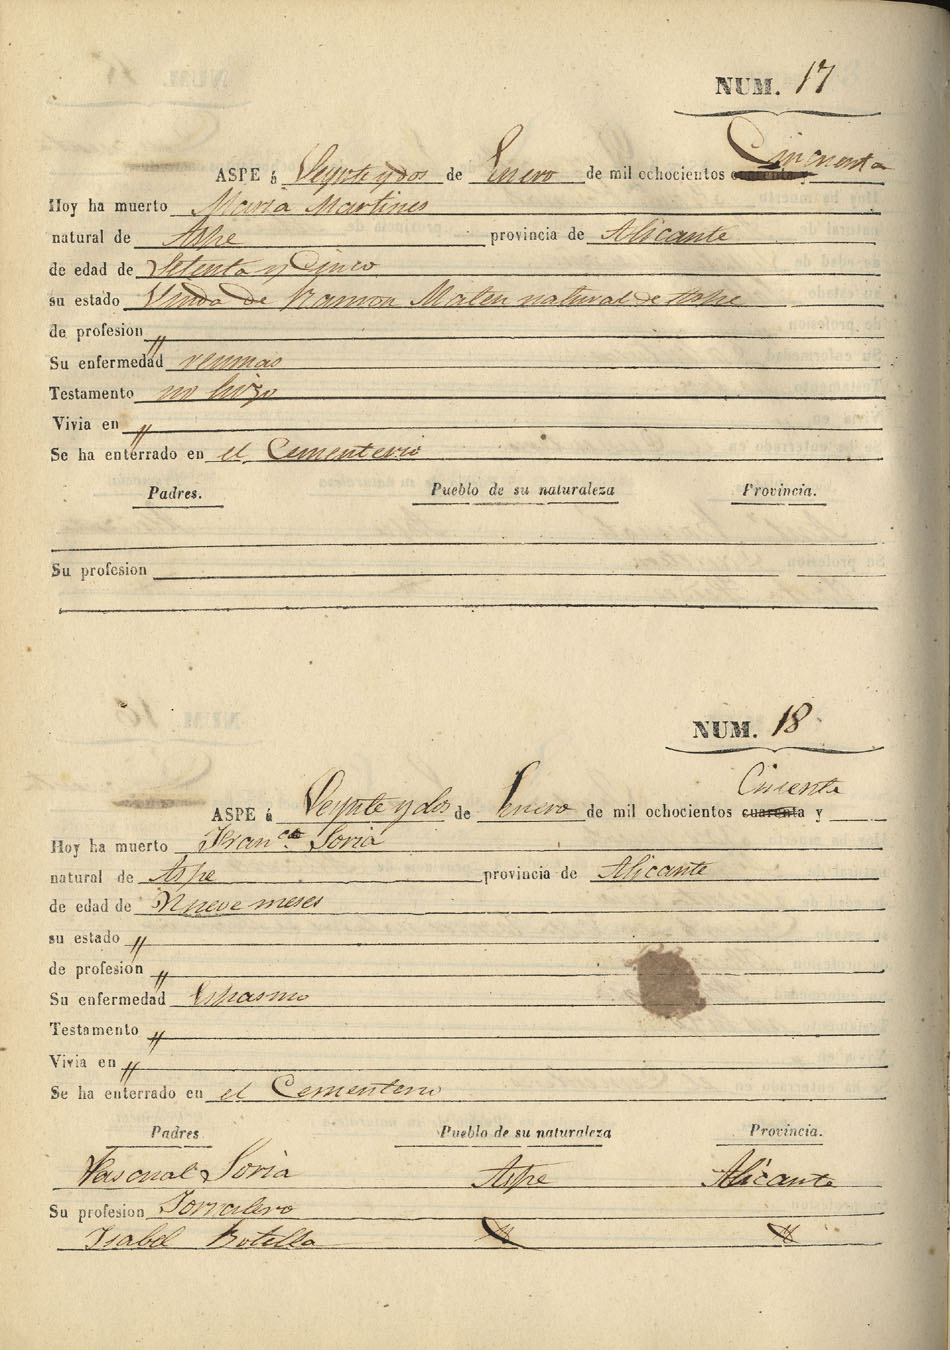 NUM. 17
Cincuenta
ASPE á Veynte y dos de Enero de mil ochocientos cuarenta y
Hoy ha muerto Maria Martines
natural de Aspe provincia de Alicante
de edad de Setenta y Cinco
su estado Viuda de Ramon Mateu natural de Aspe
de profesion "
Su enfermedad reumas
Testamento no hizo
Vivia en "
Se ha enterrado en el Cementerio
Padres. Pueblo de su naturaleza Provincia.
Su profesion
NUM. 18
Cincuenta
ASPE á Veynte y dos de Enero de mil ochocientos cuarenta y
Hoy ha muerto Fran.ca Soria
natural de Aspe provincia de Alicante
de edad de Nueve meses
su estado "
de profesion "
Su enfermedad Espasmo
Testamento "
Vivia en "
Se ha enterrado en el Cementerio
Padres Pueblo de su naturaleza Provincia.
Pascual Soria Aspe Alicante
Su profesion Jornalero
Isabel Botella " "